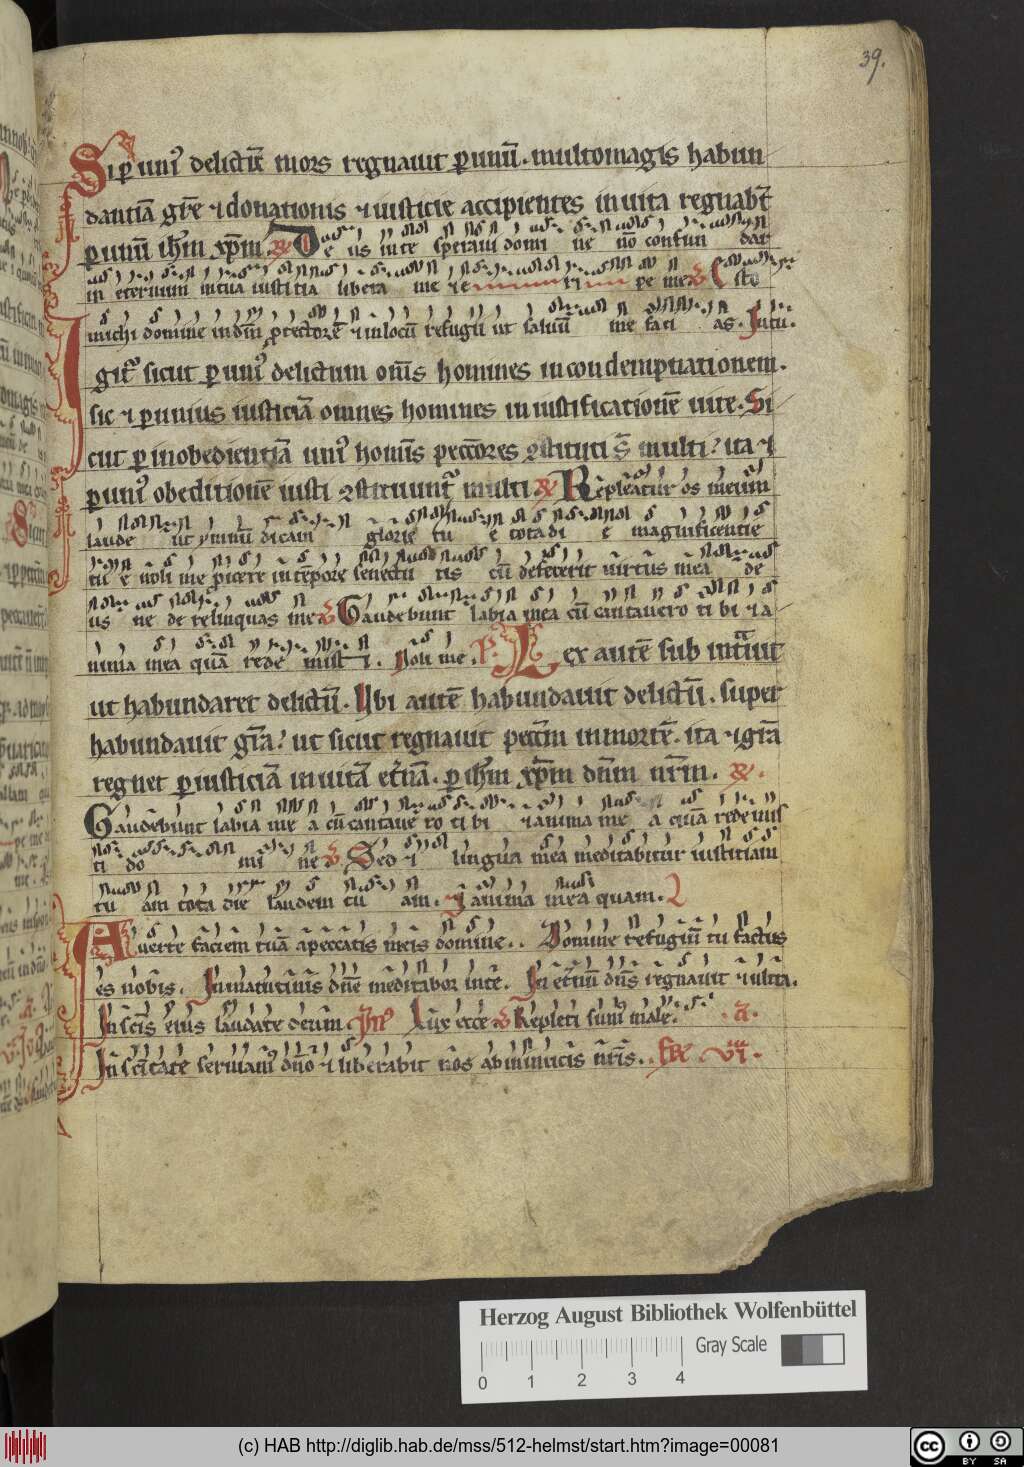 39.
Si p uni⁹ delictū mors regnauit p unū. multomagis habun
dantiā gr̄e ⁊ donationis ⁊ iusticie accipientes in uita regnabt̄
p unū ih̄m xp̄m. De us in te speraui domi ne nō confun dar
in eternum in tua iusticia libera me ⁊ e ri pe me Esto
michi domine in dm̄ protectorē ⁊ in locū refugii ut saluū me faci as. In tu.
Igit᷑ sicut p uni⁹ delictum om̄s homines in condempnationem.
sic ⁊ p unius iusticiā omnes homines in iustificationē uite. Si
cut p inobedientiā uni⁹ homīs peccōres 9stituti s̄ multi: ita ⁊
p uni⁹ obeditionē iusti 9stituunt᷑ multi Repleatur os meum
laude ut ymnū dicam glorie tu e tota di e magnificentie
tu e noli me picere in tēpore senectu tis cū defecerit uirtus mea de
us ne de relinquas me Gaudebunt labia mea cū cantauero ti bi ⁊ a
nima mea quā rede misti. Noli me. Lex autē sub intuit
ut habundaret delictū. Ubi autē habundauit delictū. super
habundauit gr̄a: ut sicut regnauit pecc̄m in mortē. ita ⁊ gr̄a
regnet p iusticiā in uitā et̄nā. p ih̄m xp̄m dn̄m nr̄m.
Gaudebunt labia me a cū cantaue ro ti bi ⁊ anima me a quā redemis
ti do mi ne Sed ⁊ lingua mea meditabitur iustitiam
tu am tota die laudem tu am. anima mea quam.
Auerte faciem tuā a peccatis meis domine.. Domine refugiū tu factus
es nobis. In matutinis dn̄e meditabor in te. In et̄nū dn̄s regnauit ⁊ ultra.
In scīs eius laudate deum. Lux ecce Repleti sum⁹ male.
In scītate seruiam⁹ dn̄o ⁊ liberabit nos ab inimicis nr̄is. vi.
Herzog August Bibliothek Wolfenbüttel
Gray Scale
0 1 2 3 4
(c) HAB http://diglib.hab.de/mss/512-helmst/start.htm?image=00081
cc BY SA